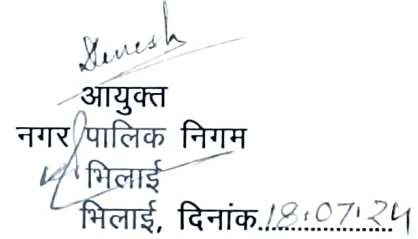 Denesh
आयुक्त
नगर पालिक निगम
भिलाई
भिलाई, दिनांक.18.07.24